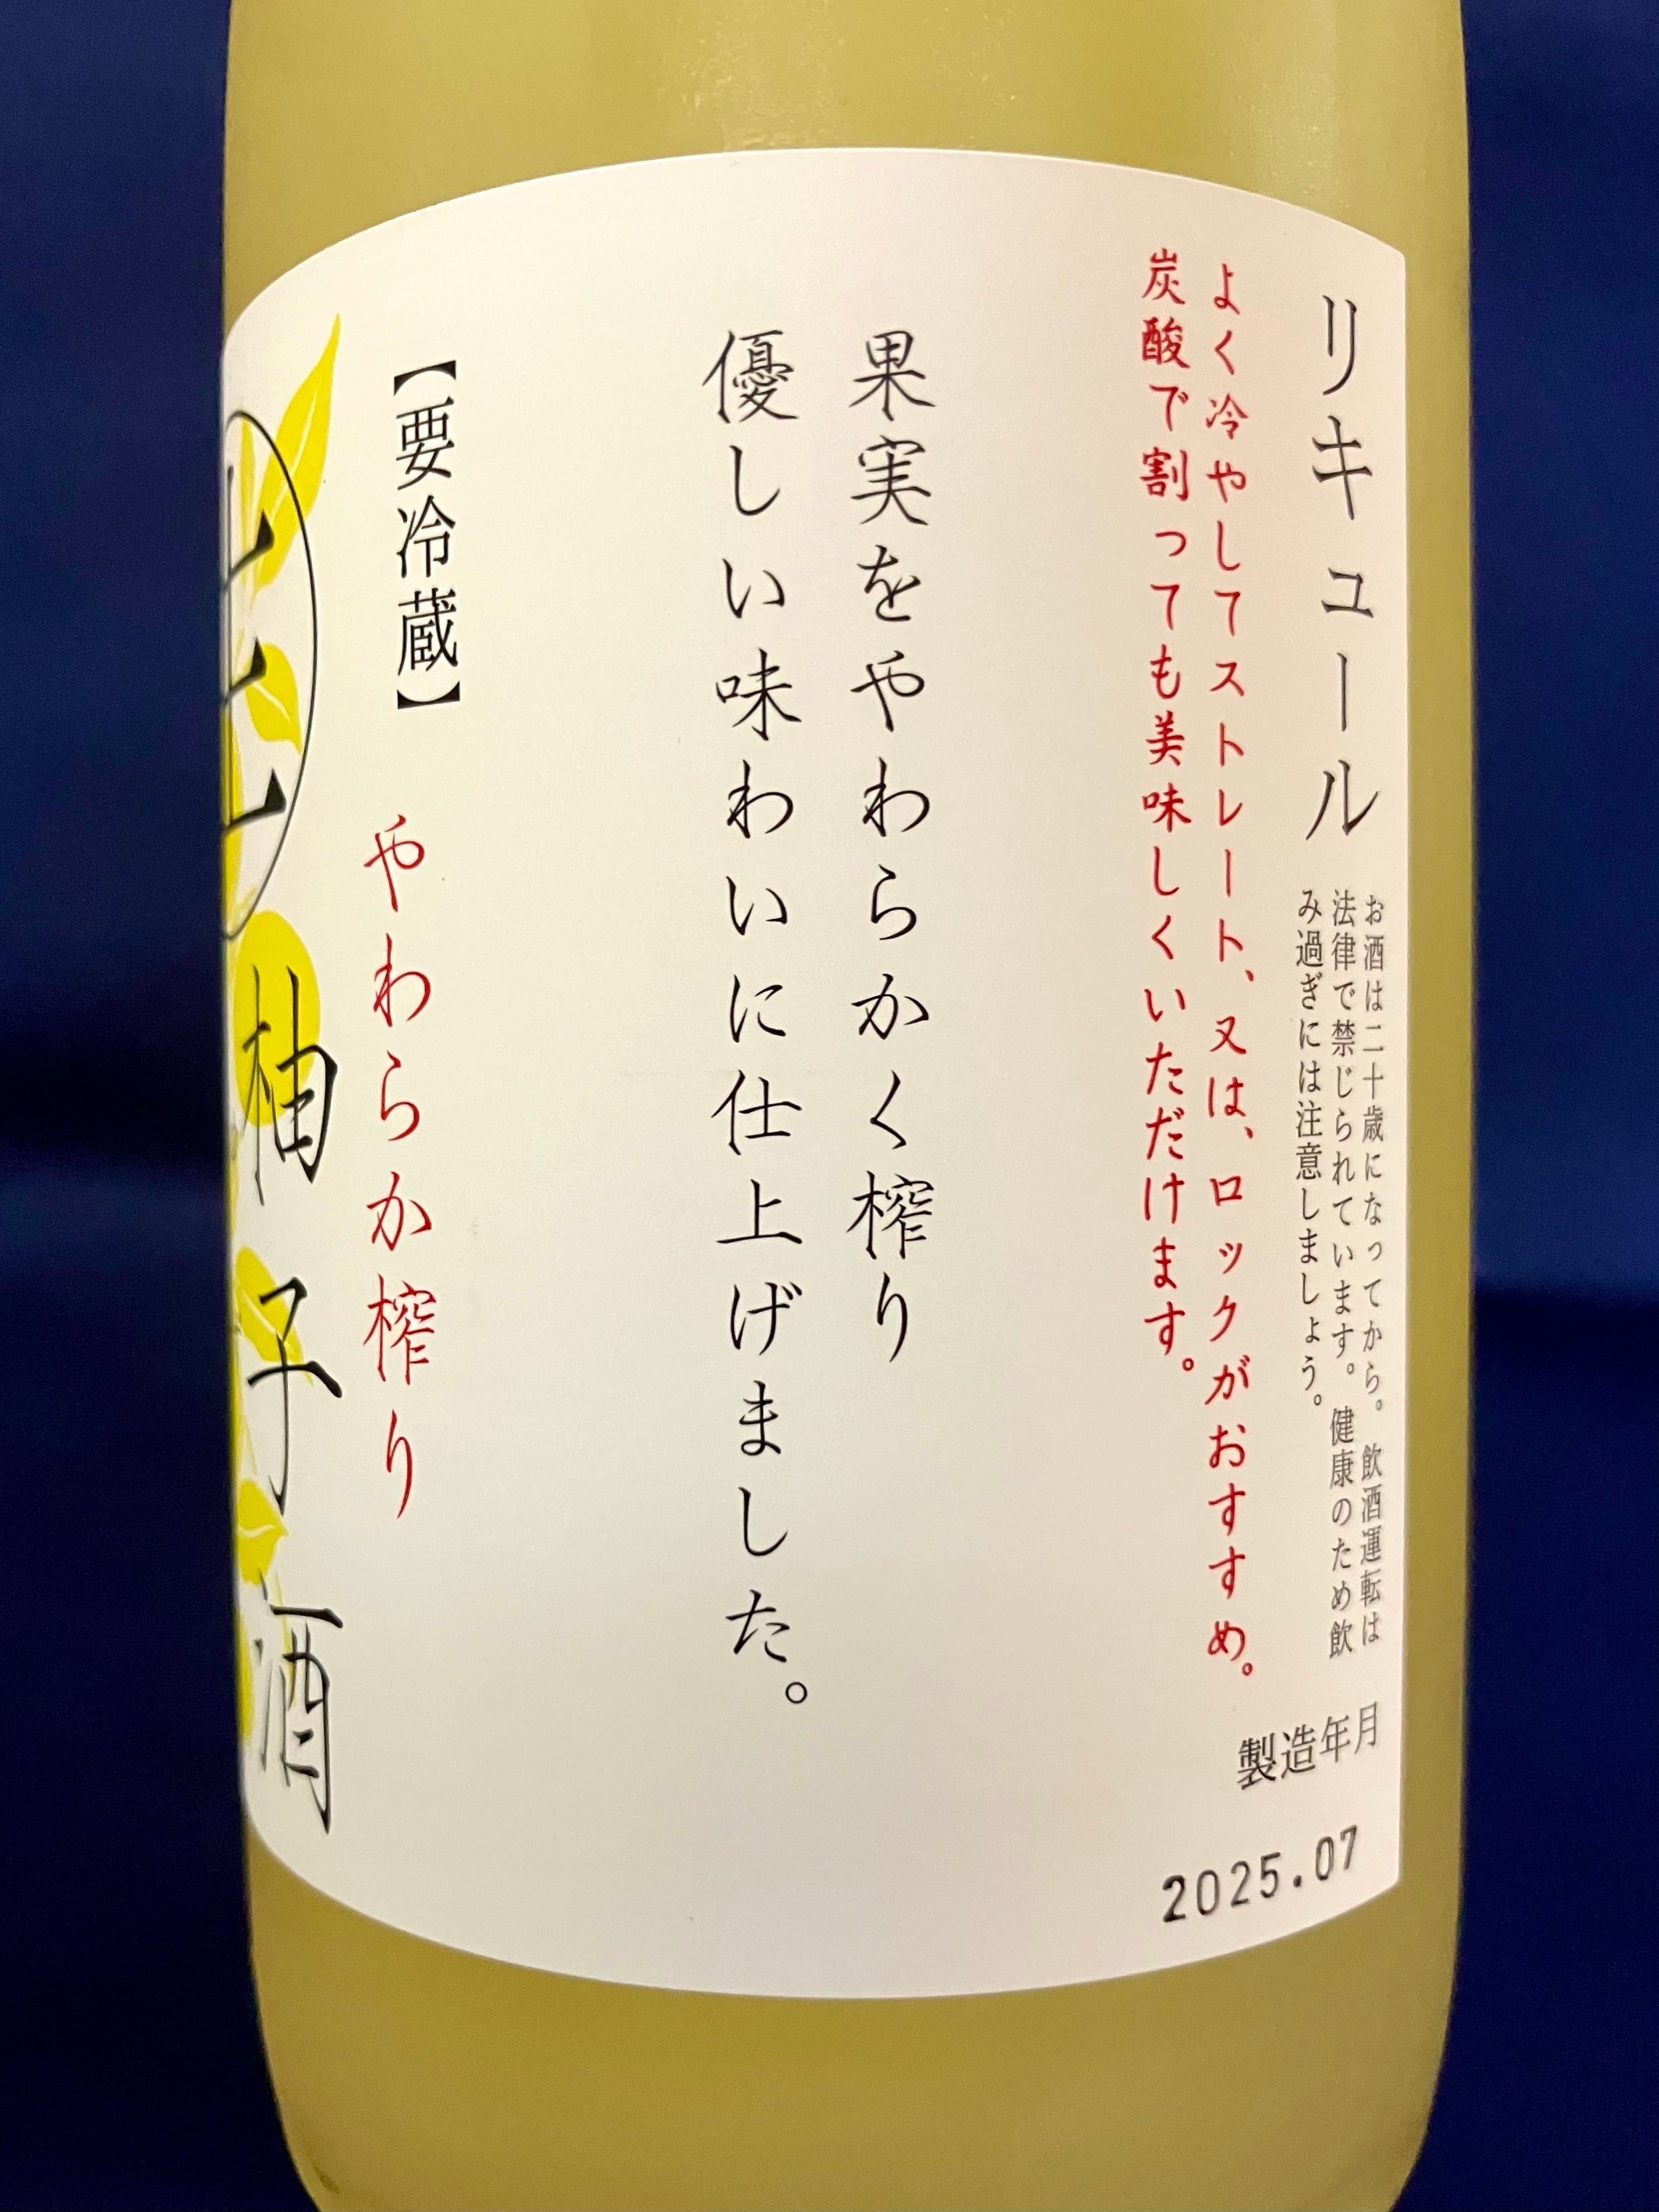 リキュール
お酒は二十歳になってから。飲酒運転は
法律で禁じられています。健康のため飲
み過ぎには注意しましょう。
製造年月
2025.07
よく冷やしてストレート、又は、ロックがおすすめ。
炭酸で割っても美味しくいただけます。
果実をやわらかく搾り
優しい味わいに仕上げました。
【要冷蔵】
やわらか搾り
生
柚子酒